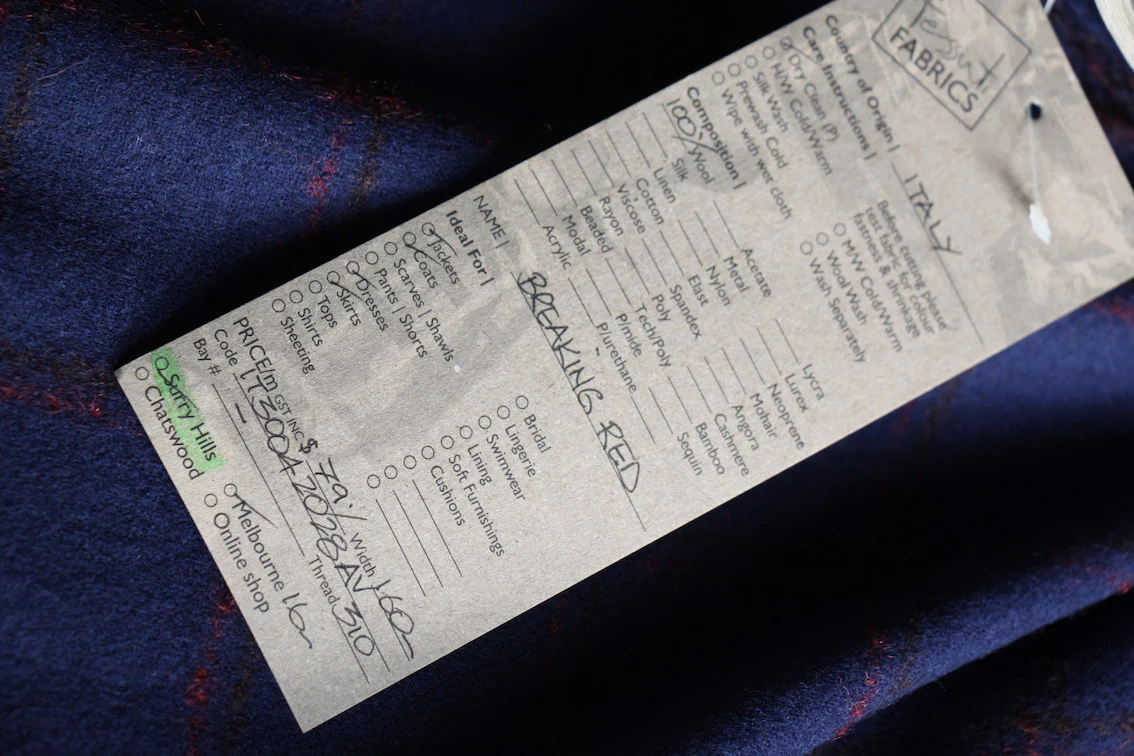 Tessuti
FABRICS
Country of Origin | ITALY
Care Instructions |
Dry Clean (P)
H/W Cold/Warm
Silk Wash
Prewash Cold
Wipe with wet cloth
Before cutting please
test fabric for colour
fastness & shrinkage
H/W Cold/Warm
Wool Wash
Wash Separately
Composition |
100% Wool
Silk
Linen
Cotton
Viscose
Rayon
Beaded
Modal
Acrylic
Acetate
Metal
Nylon
Elast
Spandex
Poly
Tech/Poly
P/mide
P/urethane
Lycra
Lurex
Neoprene
Mohair
Angora
Cashmere
Bamboo
Sequin
NAME | BREAKING RED
Ideal For |
Jackets
Coats
Scarves | Shawls
Pants | Shorts
Dresses
Skirts
Tops
Shirts
Sheeting
Bridal
Lingerie
Swimwear
Lining
Soft Furnishings
Cushions
PRICE/m GST INC $ 79./ Width 160
Code 1T3004 2028AV Thread 310
Bay # –
Surry Hills
Chatswood
Melbourne 16m
Online shop